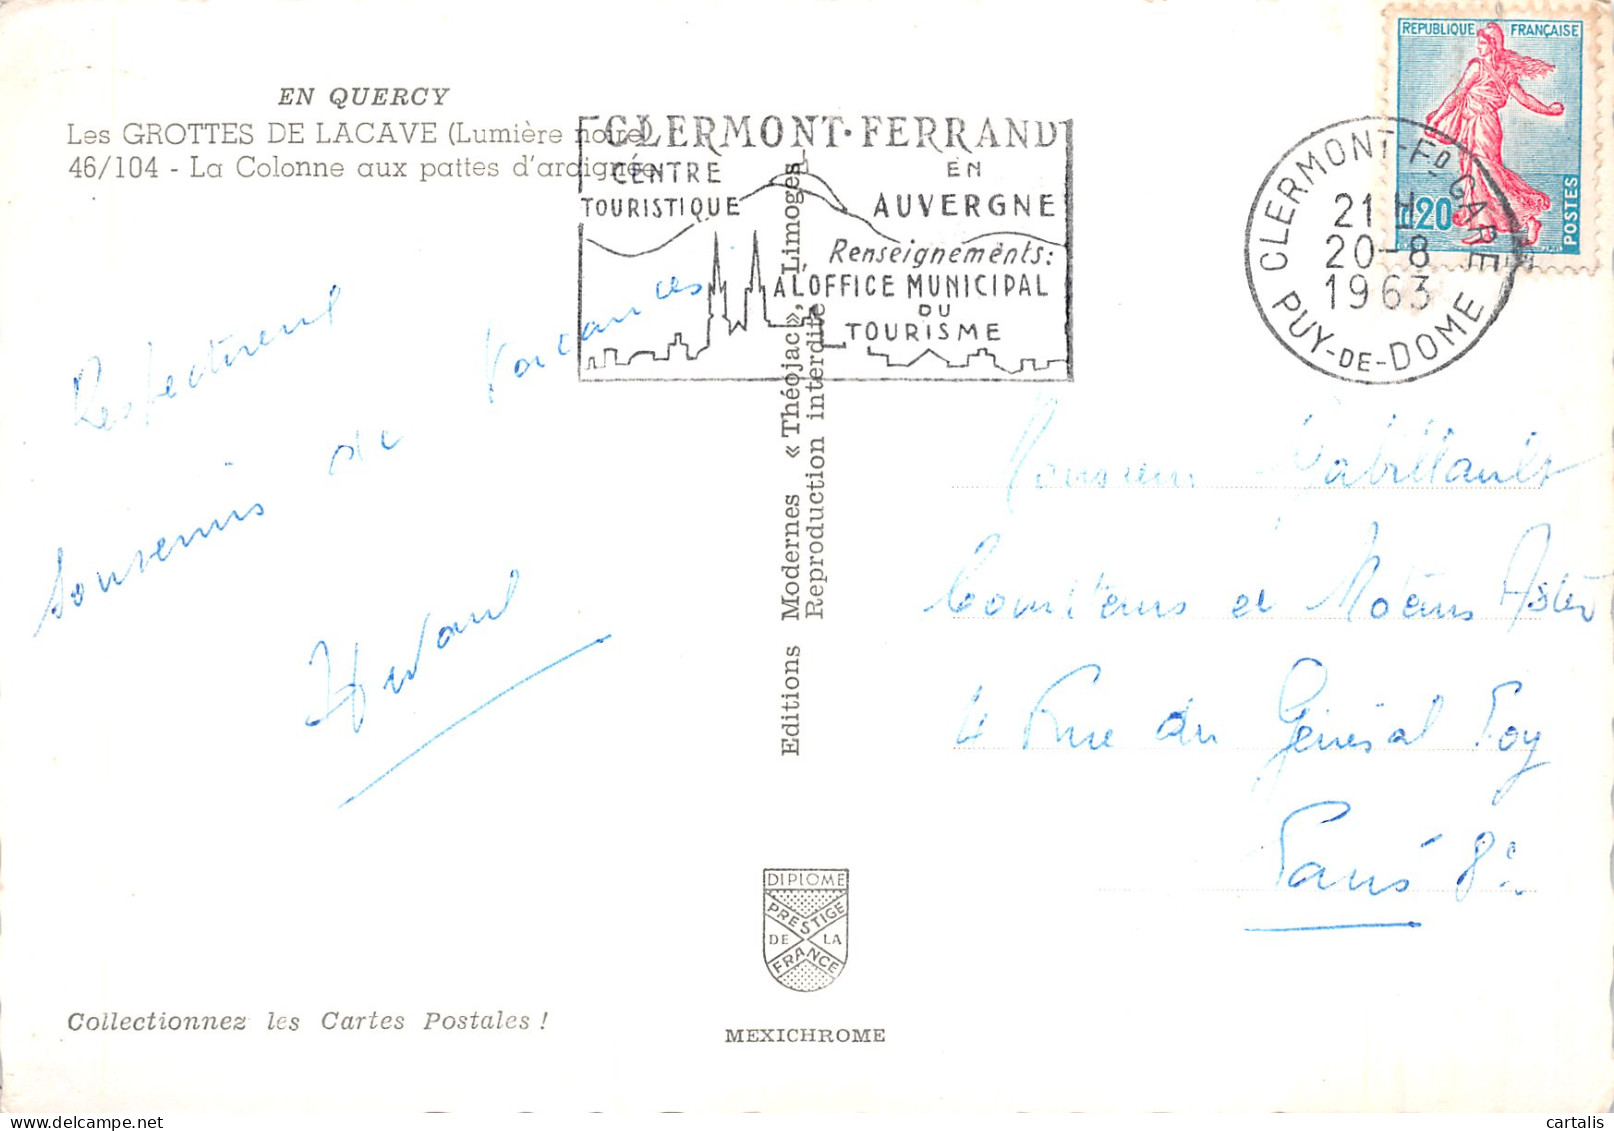 EN QUERCY
Les GROTTES DE LACAVE (Lumière noire)
46/104 - La Colonne aux pattes d'araignée
CLERMONT-FERRAND
CENTRE
TOURISTIQUE
EN
AUVERGNE
Renseignements:
A L'OFFICE MUNICIPAL
DU
TOURISME
REPUBLIQUE FRANÇAISE
0,20
POSTES
CLERMONT-Fd GARE
21 H
20-8
1963
PUY-DE-DOME
Respectueux
souvenirs de vacances
Editions Modernes « Théojac », Limoges
Reproduction interdite
Monsieur
et
4 Rue du Général Foy
Paris 8e
DIPLOME
PRESTIGE
DE LA
FRANCE
Collectionnez les Cartes Postales !
MEXICHROME
cartalis